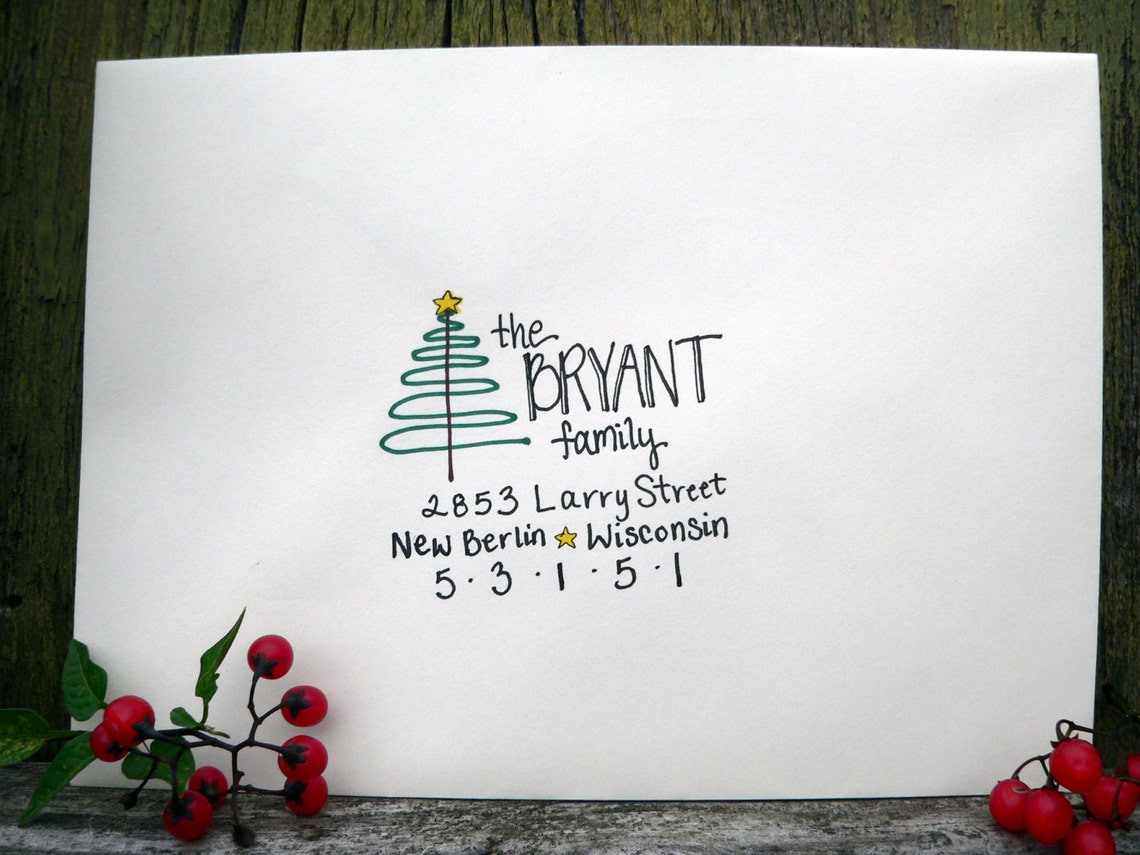 the
BRYANT
family
2853 Larry Street
New Berlin ★ Wisconsin
5·3·1·5·1